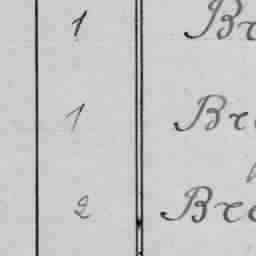 1 Br
1 Bre
2 Bre